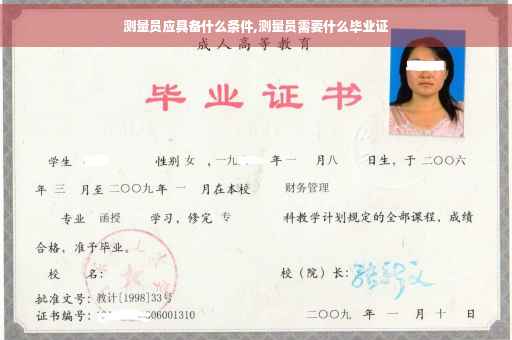 测量员应具备什么条件,测量员需要什么毕业证
成人高等教育
毕业证书
学生 性别 女 ,一九 年一 月八 日生,于二〇〇六
年 三 月至二〇〇九年 一 月在本校 财务管理
专业 函授 学习,修完 专 科教学计划规定的全部课程,成绩
合格,准予毕业。
校 名: 校(院)长:
批准文号:教计[1998]33号
证书编号: 06001310 二〇〇九 年 一 月 十 日